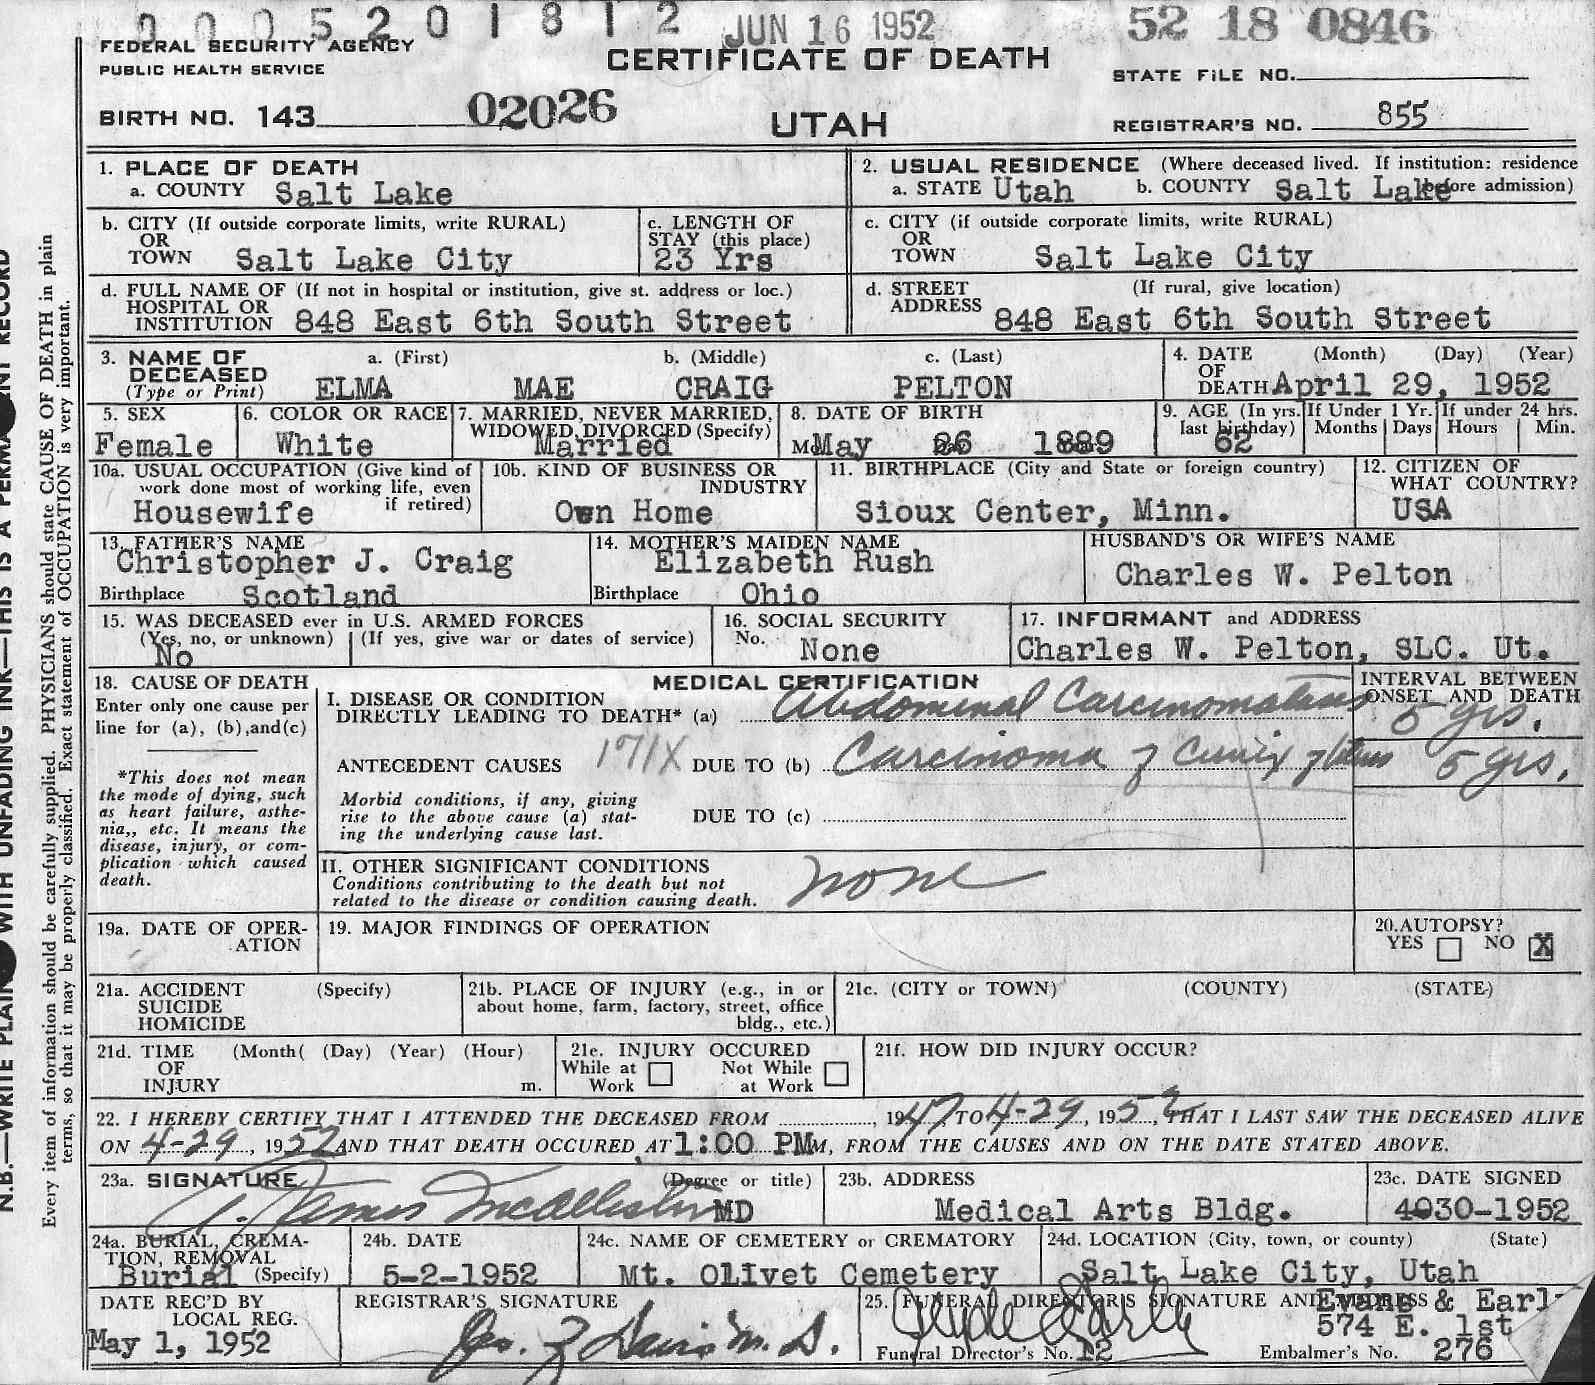 0 0 0 5 2 0 1 8 1 2 JUN 16 1952 52 18 0846
FEDERAL SECURITY AGENCY
PUBLIC HEALTH SERVICE
CERTIFICATE OF DEATH
STATE FILE NO.
BIRTH NO. 143 02026
UTAH
REGISTRAR'S NO. 855
N.B.—WRITE PLAIN WITH UNFADING INK—THIS IS A PERMANENT RECORD
Every item of information should be carefully supplied. PHYSICIANS should state CAUSE OF DEATH in plain
terms, so that it may be properly classified. Exact statement of OCCUPATION is very important.
1. PLACE OF DEATH
a. COUNTY Salt Lake
2. USUAL RESIDENCE (Where deceased lived. If institution: residence
a. STATE Utah b. COUNTY Salt Lake before admission)
b. CITY (If outside corporate limits, write RURAL)
OR
TOWN Salt Lake City
c. LENGTH OF
STAY (this place)
23 Yrs
c. CITY (if outside corporate limits, write RURAL)
OR
TOWN Salt Lake City
d. FULL NAME OF (If not in hospital or institution, give st. address or loc.)
HOSPITAL OR
INSTITUTION 848 East 6th South Street
d. STREET (If rural, give location)
ADDRESS 848 East 6th South Street
3. NAME OF a. (First) b. (Middle) c. (Last)
DECEASED
(Type or Print) ELMA MAE CRAIG PELTON
4. DATE (Month) (Day) (Year)
OF
DEATH April 29, 1952
5. SEX
Female
6. COLOR OR RACE
White
7. MARRIED, NEVER MARRIED,
WIDOWED, DIVORCED (Specify)
Married
8. DATE OF BIRTH
May 26 1889
9. AGE (In yrs.
last birthday)
62
If Under 1 Yr.
Months Days
If under 24 hrs.
Hours Min.
10a. USUAL OCCUPATION (Give kind of
work done most of working life, even
if retired)
Housewife
10b. KIND OF BUSINESS OR
INDUSTRY
Own Home
11. BIRTHPLACE (City and State or foreign country)
Sioux Center, Minn.
12. CITIZEN OF
WHAT COUNTRY?
USA
13. FATHER'S NAME
Christopher J. Craig
Birthplace Scotland
14. MOTHER'S MAIDEN NAME
Elizabeth Rush
Birthplace Ohio
HUSBAND'S OR WIFE'S NAME
Charles W. Pelton
15. WAS DECEASED ever in U.S. ARMED FORCES
(Yes, no, or unknown) (If yes, give war or dates of service)
No
16. SOCIAL SECURITY
No. None
17. INFORMANT and ADDRESS
Charles W. Pelton, SLC. Ut.
18. CAUSE OF DEATH
Enter only one cause per
line for (a), (b),and(c)
*This does not mean
the mode of dying, such
as heart failure, asthe-
nia,, etc. It means the
disease, injury, or com-
plication which caused
death.
MEDICAL CERTIFICATION
I. DISEASE OR CONDITION
DIRECTLY LEADING TO DEATH* (a) Abdominal Carcinomatosis
INTERVAL BETWEEN
ONSET AND DEATH
5 yrs.
ANTECEDENT CAUSES 171X DUE TO (b) Carcinoma of Cervix of Uterus 5 yrs.
Morbid conditions, if any, giving
rise to the above cause (a) stat-
ing the underlying cause last.
DUE TO (c)
II. OTHER SIGNIFICANT CONDITIONS
Conditions contributing to the death but not
related to the disease or condition causing death.
none
19a. DATE OF OPER-
ATION
19. MAJOR FINDINGS OF OPERATION
20. AUTOPSY?
YES NO X
21a. ACCIDENT (Specify)
SUICIDE
HOMICIDE
21b. PLACE OF INJURY (e.g., in or
about home, farm, factory, street, office
bldg., etc.)
21c. (CITY or TOWN) (COUNTY) (STATE)
21d. TIME (Month( (Day) (Year) (Hour)
OF
INJURY m.
21e. INJURY OCCURED
While at Not While
Work at Work
21f. HOW DID INJURY OCCUR?
22. I HEREBY CERTIFY THAT I ATTENDED THE DECEASED FROM , 1947, TO 4-29, 1952, THAT I LAST SAW THE DECEASED ALIVE
ON 4-29, 1952 AND THAT DEATH OCCURED AT 1:00 PM m, FROM THE CAUSES AND ON THE DATE STATED ABOVE.
23a. SIGNATURE (Degree or title)
J. James McAllister MD
23b. ADDRESS
Medical Arts Bldg.
23c. DATE SIGNED
4-30-1952
24a. BURIAL, CREMA-
TION, REMOVAL
Burial (Specify)
24b. DATE
5-2-1952
24c. NAME OF CEMETERY or CREMATORY
Mt. Olivet Cemetery
24d. LOCATION (City, town, or county) (State)
Salt Lake City, Utah
DATE REC'D BY
LOCAL REG.
May 1, 1952
REGISTRAR'S SIGNATURE
Geo. Z Davis M. D.
25. FUNERAL DIRECTOR'S SIGNATURE AND ADDRESS
Evans & Earl
574 E. 1st
Funeral Director's No. 12 Embalmer's No. 276